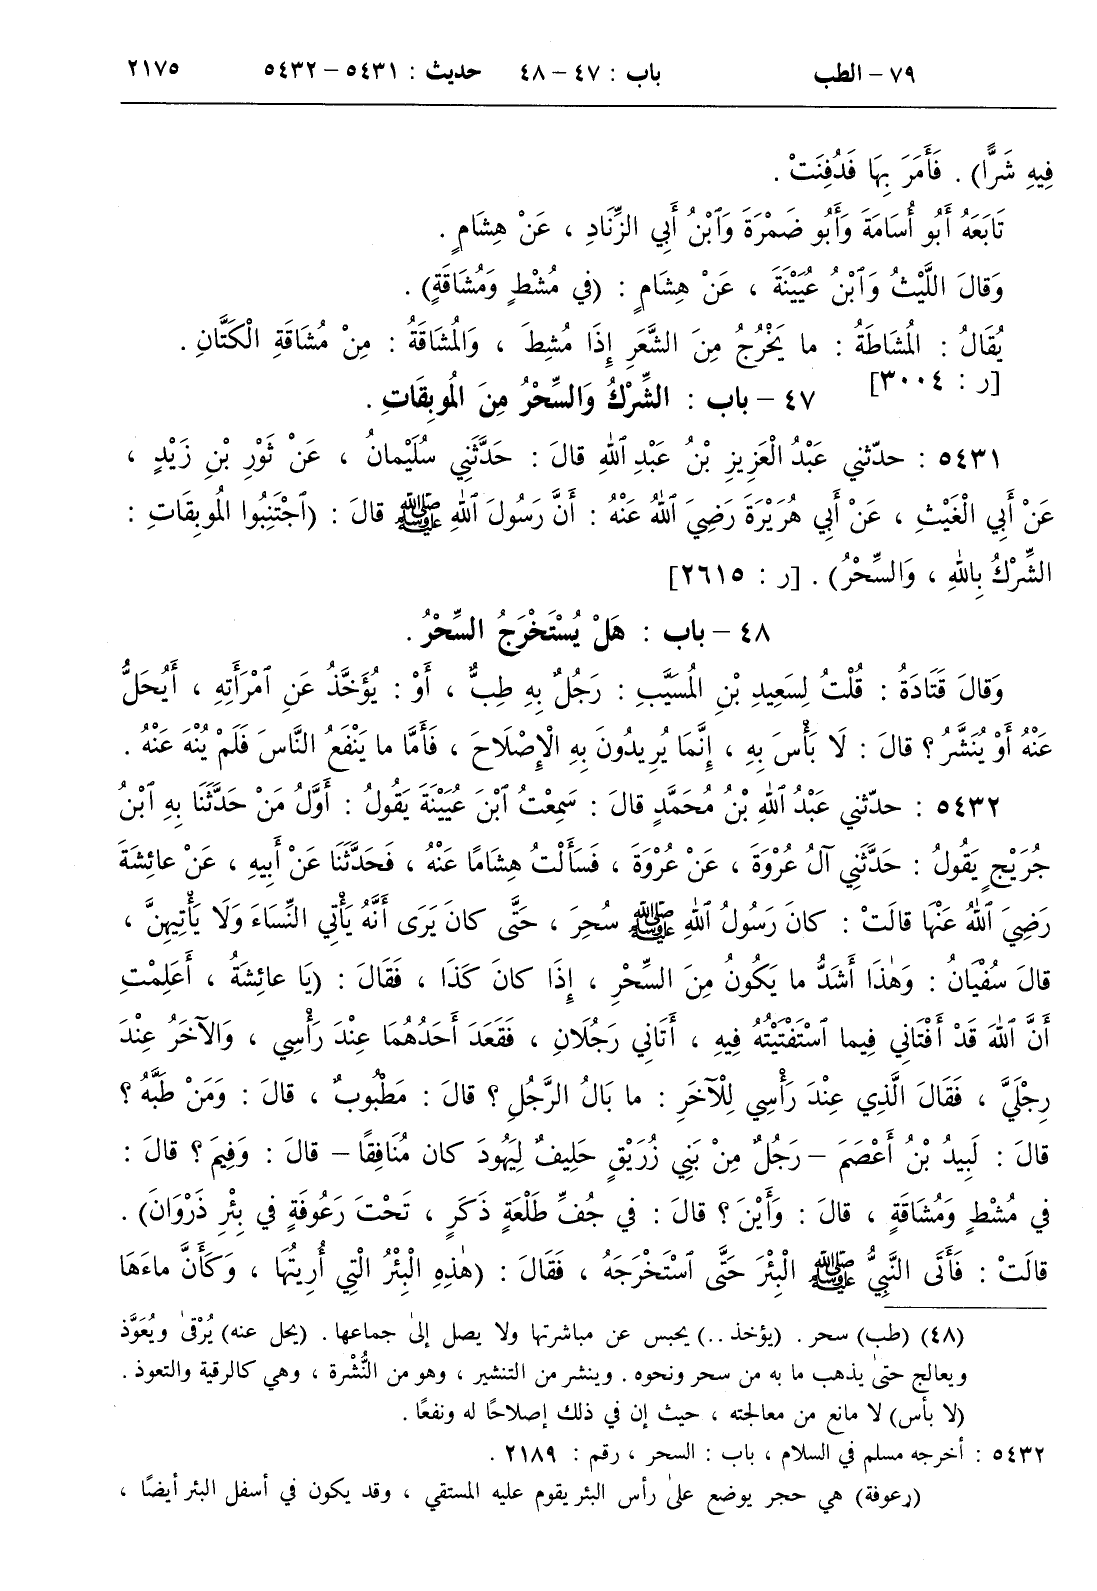 ٧٩ – الطب باب : ٤٧ – ٤٨ حديث : ٥٤٣١ – ٥٤٣٢ ٢١٧٥
فِيهِ شَرًّا) . فَأَمَرَ بِهَا فَدُفِنَتْ .
تَابَعَهُ أَبُو أُسَامَةَ وَأَبُو ضَمْرَةَ وَٱبْنُ أَبِي الزِّنَادِ ، عَنْ هِشَامٍ .
وَقالَ اللَّيْثُ وَٱبْنُ عُيَيْنَةَ ، عَنْ هِشَامٍ : (في مُشْطٍ وَمُشَاقَةٍ) .
يُقَالُ : الْمُشَاطَةُ : ما يَخْرُجُ مِنَ الشَّعَرِ إِذَا مُشِطَ ، وَالمُشَاقَةُ : مِنْ مُشَاقَةِ الْكَتَّانِ .
[ر : ٣٠٠٤]
٤٧ – باب : الشِّرْكُ وَالسِّحْرُ مِنَ الْمُوبِقَاتِ .
٥٤٣١ : حدّثني عَبْدُ الْعَزِيزِ بْنُ عَبْدِ ٱللهِ قالَ : حَدَّثَنِي سُلَيْمانُ ، عَنْ ثَوْرِ بْنِ زَيْدٍ ،
عَنْ أَبِي الْغَيْثِ ، عَنْ أَبِي هُرَيْرَةَ رَضِيَ ٱللهُ عَنْهُ : أَنَّ رَسُولَ ٱللهِ ﷺ قالَ : (ٱجْتَنِبُوا الْمُوبِقَاتِ :
الشِّرْكُ بِاللهِ ، وَالسِّحْرُ) . [ر : ٢٦١٥]
٤٨ – باب : هَلْ يُسْتَخْرَجُ السِّحْرُ .
وَقالَ قَتَادَةُ : قُلْتُ لِسَعِيدِ بْنِ الْمُسَيَّبِ : رَجُلٌ بِهِ طِبٌّ ، أَوْ : يُؤَخَّذُ عَنِ ٱمْرَأَتِهِ ، أَيُحَلُّ
عَنْهُ أَوْ يُنَشَّرُ ؟ قالَ : لَا بَأْسَ بِهِ ، إِنَّمَا يُرِيدُونَ بِهِ الْإِصْلَاحَ ، فَأَمَّا ما يَنْفَعُ النَّاسَ فَلَمْ يُنْهَ عَنْهُ .
٥٤٣٢ : حدّثني عَبْدُ ٱللهِ بْنُ مُحَمَّدٍ قالَ : سَمِعْتُ ٱبْنَ عُيَيْنَةَ يَقُولُ : أَوَّلُ مَنْ حَدَّثَنَا بِهِ ٱبْنُ
جُرَيْجٍ يَقُولُ : حَدَّثَنِي آلُ عُرْوَةَ ، عَنْ عُرْوَةَ ، فَسَأَلْتُ هِشَامًا عَنْهُ ، فَحَدَّثَنَا عَنْ أَبِيهِ ، عَنْ عائِشَةَ
رَضِيَ ٱللهُ عَنْهَا قالَتْ : كانَ رَسُولُ ٱللهِ ﷺ سُحِرَ ، حَتَّى كانَ يَرَى أَنَّهُ يَأْتِي النِّسَاءَ وَلَا يَأْتِيهِنَّ ،
قالَ سُفْيَانُ : وَهٰذَا أَشَدُّ ما يَكُونُ مِنَ السِّحْرِ ، إِذَا كانَ كَذَا ، فَقَالَ : (يَا عائِشَةُ ، أَعَلِمْتِ
أَنَّ ٱللهَ قَدْ أَفْتَانِي فِيما ٱسْتَفْتَيْتُهُ فِيهِ ، أَتَانِي رَجُلَانِ ، فَقَعَدَ أَحَدُهُمَا عِنْدَ رَأْسِي ، وَالآخَرُ عِنْدَ
رِجْلَيَّ ، فَقَالَ الَّذِي عِنْدَ رَأْسِي لِلْآخَرِ : ما بَالُ الرَّجُلِ ؟ قالَ : مَطْبُوبٌ ، قالَ : وَمَنْ طَبَّهُ ؟
قالَ : لَبِيدُ بْنُ أَعْصَمَ – رَجُلٌ مِنْ بَنِي زُرَيْقٍ حَلِيفٌ لِيَهُودَ كان مُنَافِقًا – قالَ : وَفِيمَ ؟ قالَ :
في مُشْطٍ وَمُشَاقَةٍ ، قالَ : وَأَيْنَ ؟ قالَ : في جُفِّ طَلْعَةٍ ذَكَرٍ ، تَحْتَ رَعُوفَةٍ في بِئْرِ ذَرْوَانَ) .
قالَتْ : فَأَتَى النَّبِيُّ ﷺ الْبِئْرَ حَتَّى ٱسْتَخْرَجَهُ ، فَقَالَ : (هٰذِهِ الْبِئْرُ الَّتِي أُرِيتُهَا ، وَكَأَنَّ ماءَهَا
(٤٨) (طب) سحر . (يؤخذ ..) يحبس عن مباشرتها ولا يصل إلىٰ جماعها . (يحل عنه) يُرْقىٰ ويُعَوَّذ
ويعالج حتىٰ يذهب ما به من سحر ونحوه . وينشر من التنشير ، وهو من النُّشْرة ، وهي كالرقية والتعوذ .
(لا بأس) لا مانع من معالجته ، حيث إن في ذلك إصلاحًا له ونفعًا .
٥٤٣٢ : أخرجه مسلم في السلام ، باب : السحر ، رقم : ٢١٨٩ .
(رعوفة) هي حجر يوضع علىٰ رأس البئر يقوم عليه المستقي ، وقد يكون في أسفل البئر أيضًا ،